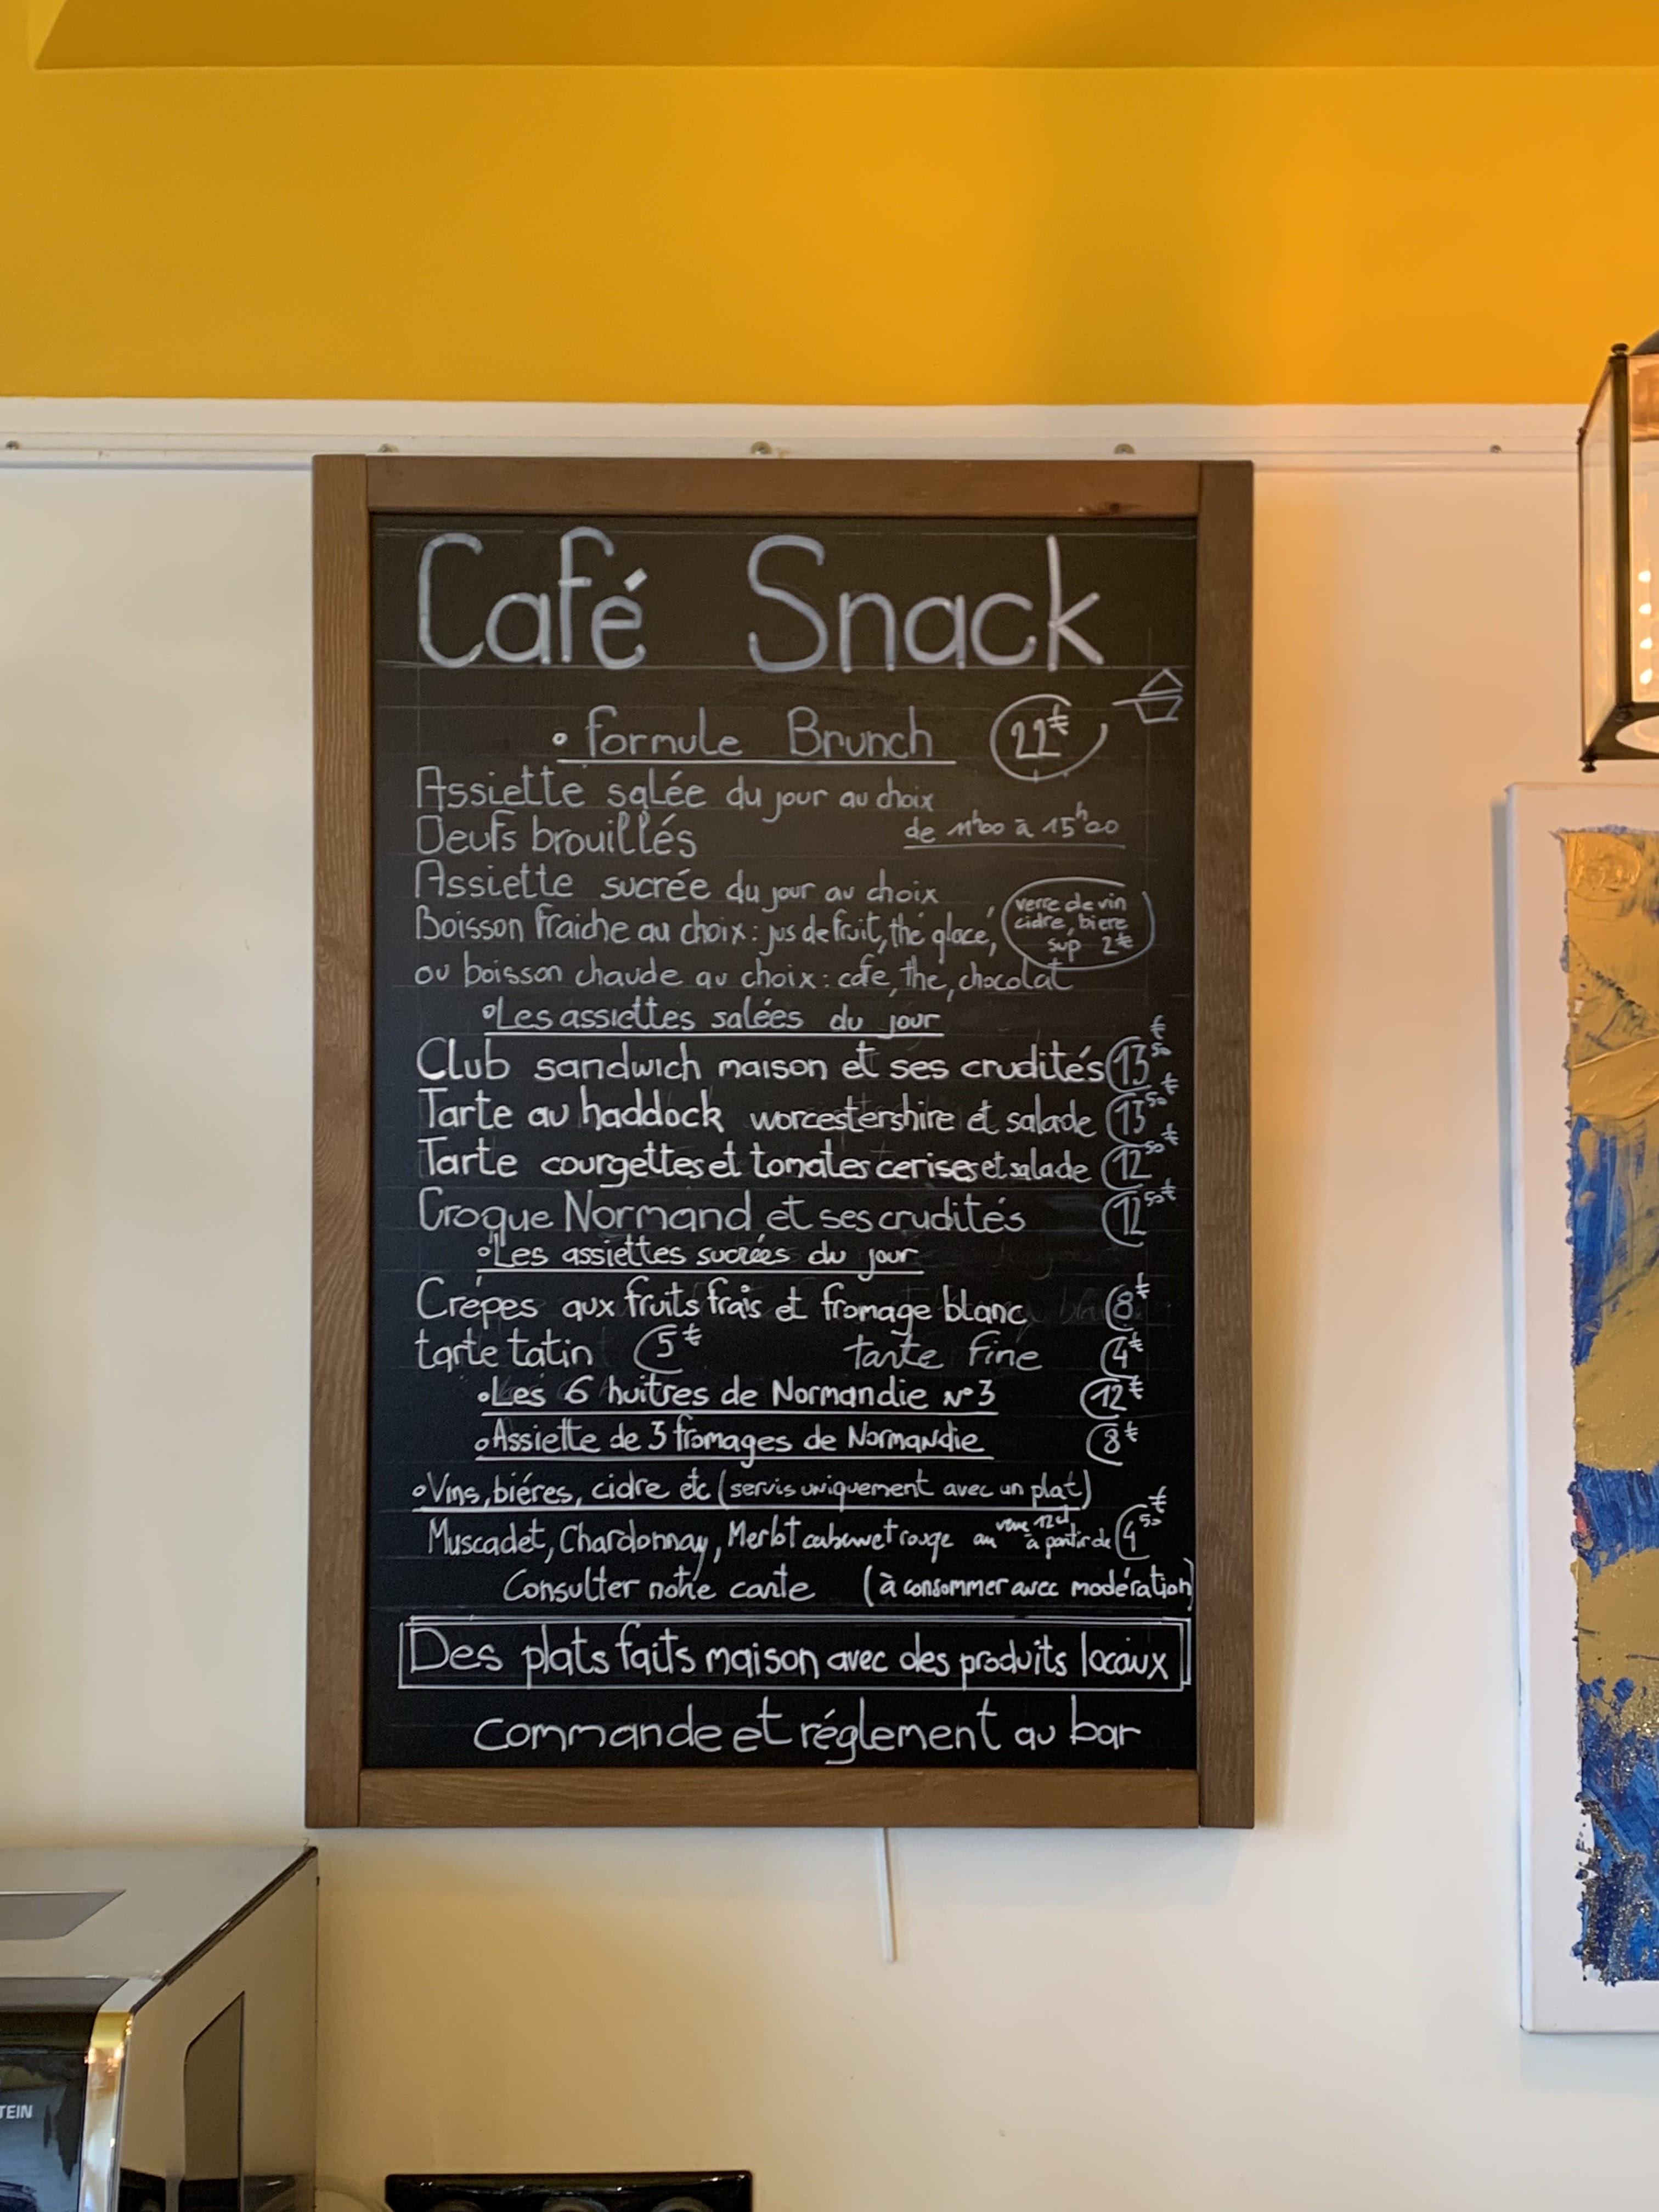 Café Snack
• formule Brunch 22€
Assiette salée du jour au choix
Oeufs brouillés de 11h00 à 15h00
Assiette sucrée du jour au choix
Boisson fraiche au choix : jus de fruit, thé glacé,
verre de vin
cidre, biere
sup 2€
ou boisson chaude au choix : cafe, the, chocolat
• Les assiettes salées du jour
Club sandwich maison et ses crudités 13€50
Tarte au haddock worcestershire et salade 13€50
Tarte courgettes et tomates cerises et salade 12€50
Croque Normand et ses crudités 12€50
• Les assiettes sucrées du jour
Crêpes aux fruits frais et fromage blanc 8€
tarte tatin 5€ tarte fine 4€
• Les 6 huitres de Normandie N°3 12€
• Assiette de 3 fromages de Normandie 8€
• Vins, biéres, cidre etc (servis uniquement avec un plat)
Muscadet, Chardonnay, Merlot cabernet rouge au verre 12cl à partir de 4€50
Consulter notre carte (à consommer avec modération)
Des plats faits maison avec des produits locaux
commande et réglement au bar
TEIN